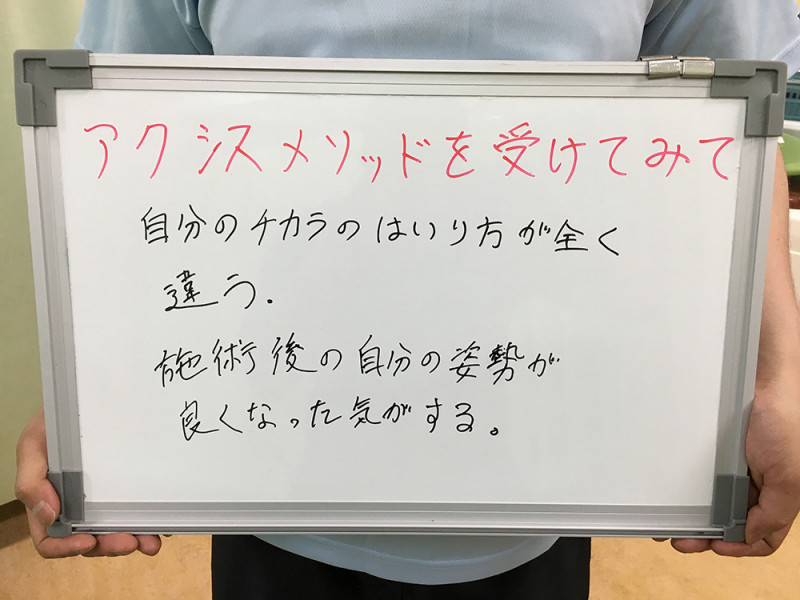 アクシスメソッドを受けてみて
自分のチカラのはいり方が全く
違う.
施術後の自分の姿勢が
良くなった気がする。